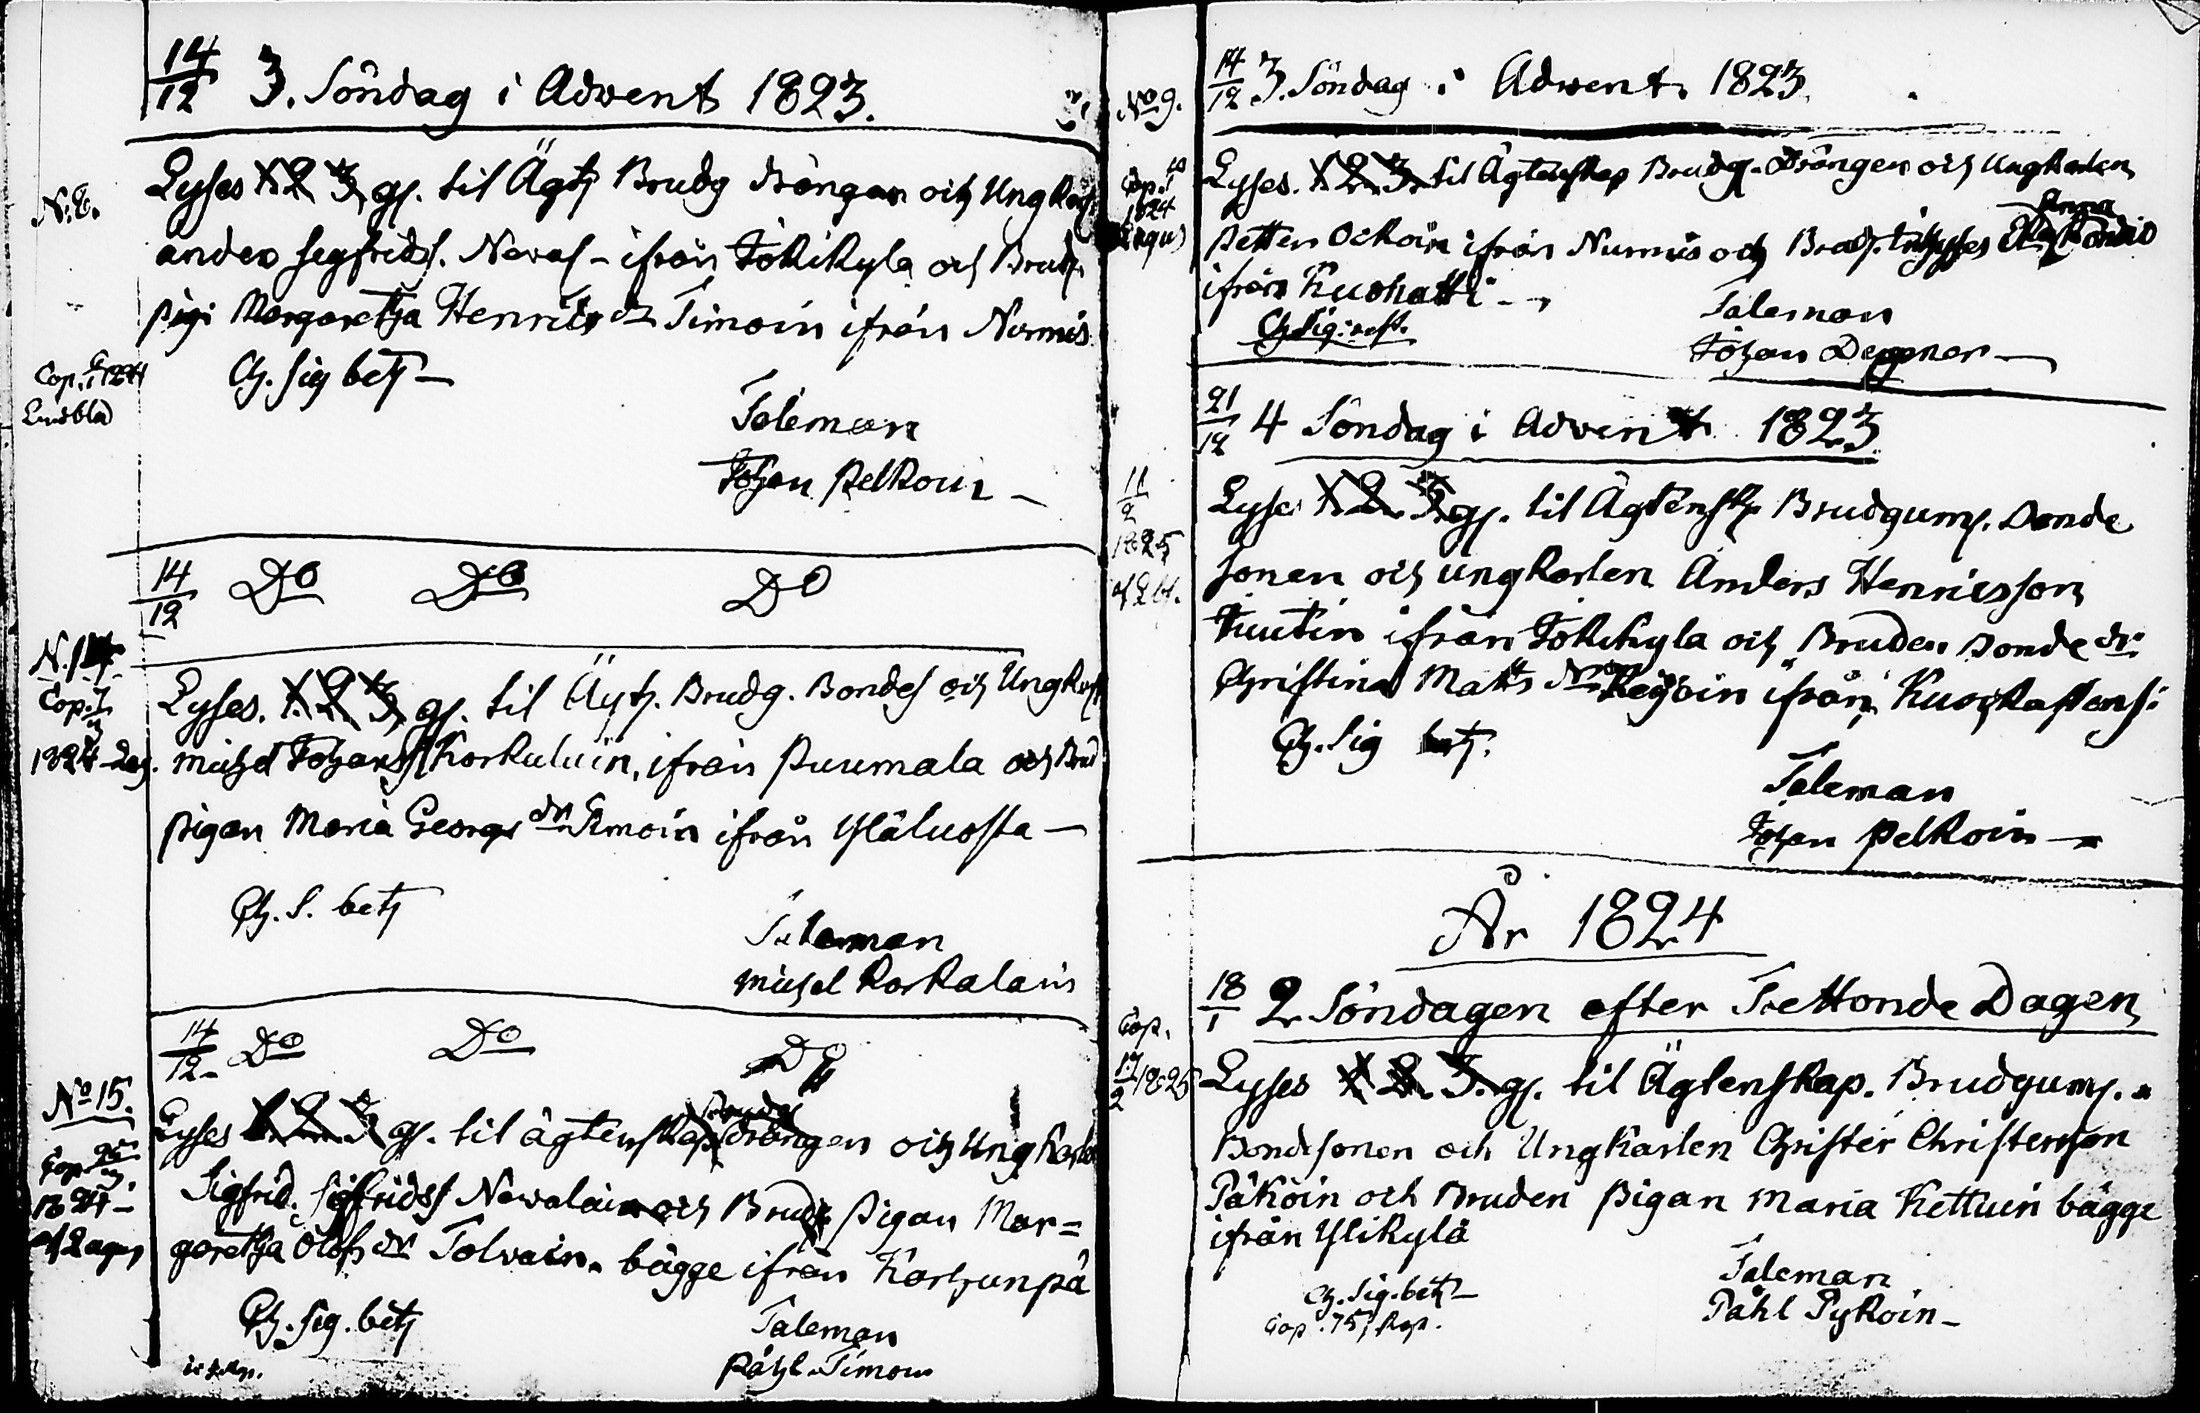 14/12 3. Söndag i Advent 1823.
N:8.
Lyses 1 2 3 gs. til Ägtj Brudg drängan och Ungkarl
anders Segfridss. Nevas - ifrån Jokikyla och Brud
pigi Margaretha Henriksdr Timoin ifrån Nurmis
Cop. 6/1 1824
Lindblad
Ch. sig betj -
Taleman
Johan Pelkoin -
14/12 Do Do Do
N.
Cop. 7/3
1824
Lyses. 1. 2 3 gs. til Äytj. Brudg. Bondes och Ungkarl
michel Johanss Korkalain, ifrån Puumala och Brud
pigan Maria Georgs dr Timoin ifrån Yläluosta -
Ch. S. betj
Taleman
michel Korkalain
14/12- Do Do Do
No 15.
Cop 25/3.
1824 -
af Lagus
Lyses 1 2 3 gs. til ägtenskap Brudg drängen och Ungkarlen
Sigfrid. Sigfridss Nevalain och Brud pigan Mar=
garetha Olofs dr Tolvain. bägge ifrån Karhunpä
Ch. sig. betj
Taleman
Påhl Timoin
No 9.
14/12 3. Söndag i Advent. 1823.
Cop. 18/1
1824
Lagus
Lyses. 1. 2. 3. til Ägtenskap Brudg. Drängen och Ungkarlen
Petter Ockoin ifrån Nurmis och Bruds. Anna
ifrån Kuohatti - ,
Ch Sig: rest.
Taleman
Johan Deppner -
21/12 4 Söndag i Advent 1823
11/2
1825
Lyses 1. 2. 3. gs. til Ägtensk. Brudgums. Bonde
sonen och ungkarlen Anders Henricsson
Tuutin ifrån Jokikyla och Bruden Bonde dr:
Christina Matts dr ifrån Kuohkastensi
Ch. Sig betj.
Taleman
Johan Pelkoin -
År 1824
18/1 2 Söndagen efter Trettonde Dagen
Cop.
17/2 1825
Lyses 1 2. 3. gs. til Ägtenskap. Brudgums.
Bondesonen och Ungkarlen Christer Christersson
Päkoin och Bruden pigan Maria Kettuin bägge
ifrån Ylikylä
Ch. Sig. betj -
Cop. 75 kop.
Taleman
Påhl Pykoin -